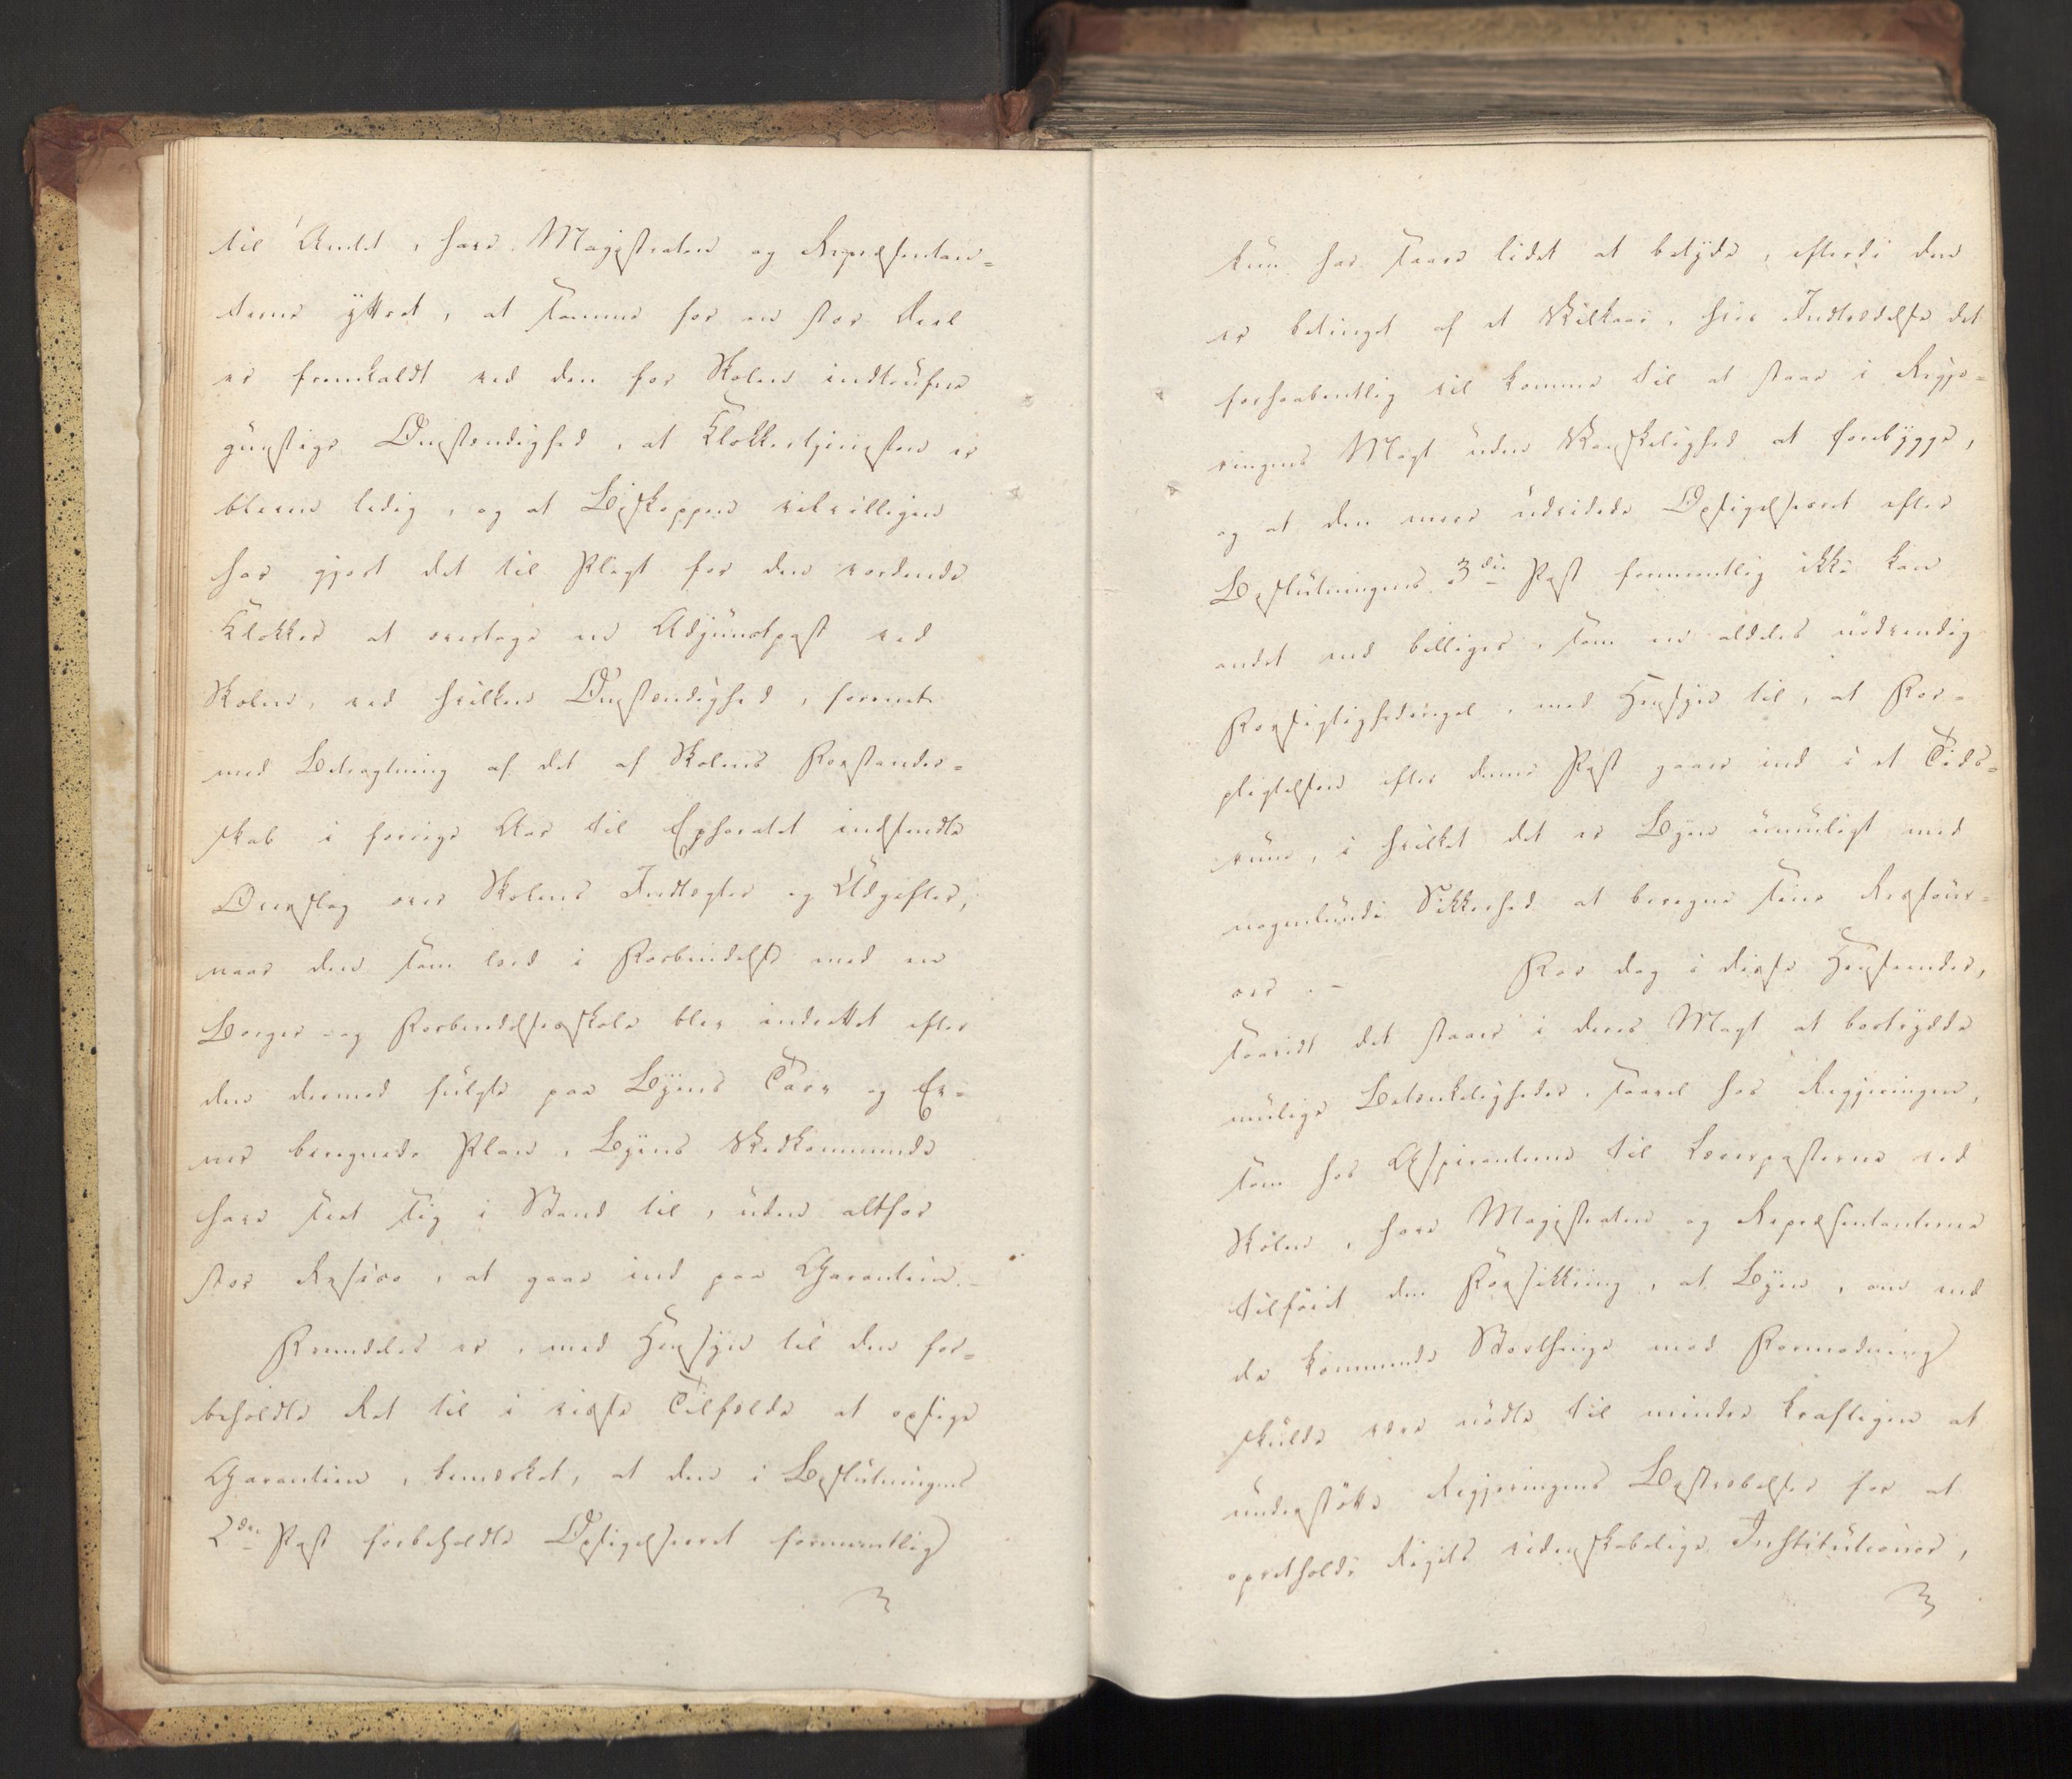 til Amtet, have Magistraten og Repræsentan-
terne yttret, at samme for en stor Deel
er fremkaldt ved den for Skolen indtrufne
gunstige Omstændighed, at Klokkertjenesten er
bleven ledig, og at Biskoppen velvilligen
har gjort det til Pligt for den vordende
Klokker at overtage en Adjunctpost ved
Skolen, ved hvilken Omstændighed, forenet
med Betragtning af det af Skolens Forstander-
skab i forrige Aar til Ephoratet indsendte
Overslag over Skolens Indtægter og Udgifter,
naar den som lærd i Forbindelse med en
Borger- og Forberedelsesskole blev indrettet efter
den dermed fulgte paa Byens Tarv og Ev-
ner beregnede Plan, Byens Vedkommende
have seet sig i Stand til, uden altfor
stor Risico, at gaae ind paa Garantien.-
Fremdeles er, med Hensyn til den for-
beholdte Ret til i visse Tilfælde at opsige
Garantien, bemærket, at den i Beslutningens
2den Post forbeholdte Opsigelsesret formeentlig
kun har saare lidet at betyde, efterdi den
er betinget af et Vilkaar, hvis Indtrædelse det
forhaabentlig vil komme til at staae i Regje-
ringens Magt uden Vanskelighed at forebygge,
og at den mere udvidede Opsigelsesret efter
Beslutningens 3die Post formeentlig ikke kan
andet end billiges, som en aldeles nödvendig
Forsigtighedsregel, med Hensyn til, at For-
pligtelsen efter denne Post gaaer ind i et Tids-
rum, i hvilket det er Byen umuligt med
nogenlunde Sikkerhed at beregne sine Ressour-
cer. - For dog i disse Henseender,
saavidt det staaer i deres Magt at bortrydde
mulige Betænkeligheder, saavel hos Regjeringen,
som hos Aspiranterne til Lærerposterne ved
Skolen, have Magistraten og Repræsentanterne
tilföiet den Forsikkring, at Byen, om end
de kommende Storthinge mod Formodning
skulde være nödte til mindre kraftigen at
understötte Regjeringens Bestræbelser for at
opretholde Rigets videnskabelige Institutioner,